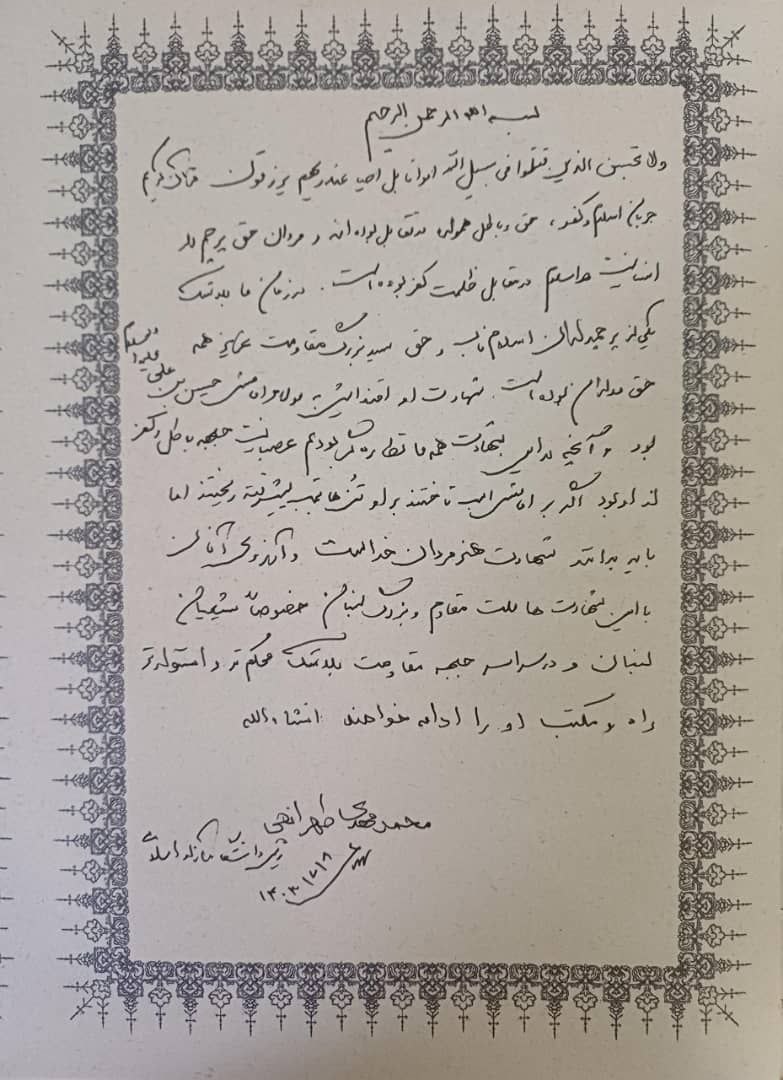 بسم الله الرحمن الرحیم
ولا تحسبن الذین قتلوا فی سبیل الله امواتا بل احیاء عند ربهم یرزقون قرآن کریم
جریان اسلام و کفر، حق و باطل همواره در تقابل بوده اند و مردان حق پرچم دار
انسانیت و اسلام در مقابل ظلمت کفر بوده است. در زمان ما بدون شک
یکی از پرچمداران اسلام ناب و حق سید بزرگ مقاومت عزیز همه
حق مداران بوده است. شهادت او اقتدایش به مولا و امامش حسین بن علی علیه السلام
بود و آنچه در این شهادت همه ما نظاره گر بودیم عصبانیت جبهه باطل و کفر
از او بود اگر بر امامش اسب تاختند بر او تن ها بمب ریختند اما
باید بدانند شهادت هنر مردان خداست و آرزوی آنان
با این شهادت ها ملت مقاوم و بزرگ لبنان خصوصاً شیعیان
لبنان و در سراسر جبهه مقاومت بدون شک محکم تر و استوارتر
راه و مکتب او را ادامه خواهند انشاءالله
محمد مهدی طهرانچی
رئیس دانشگاه آزاد اسلامی
۱۴۰۳/۷/۱۸